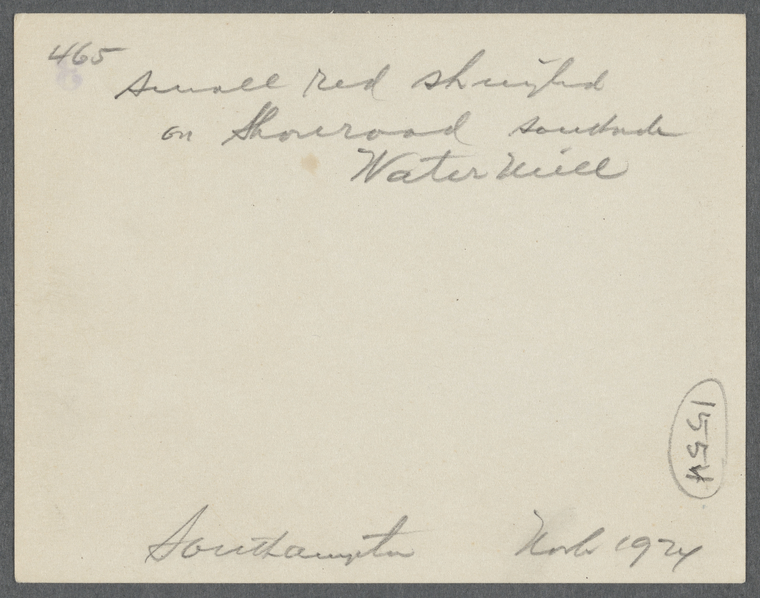 465
small red shingled
on Shore road southside
Water Mill
1554
Southampton Nov 1924